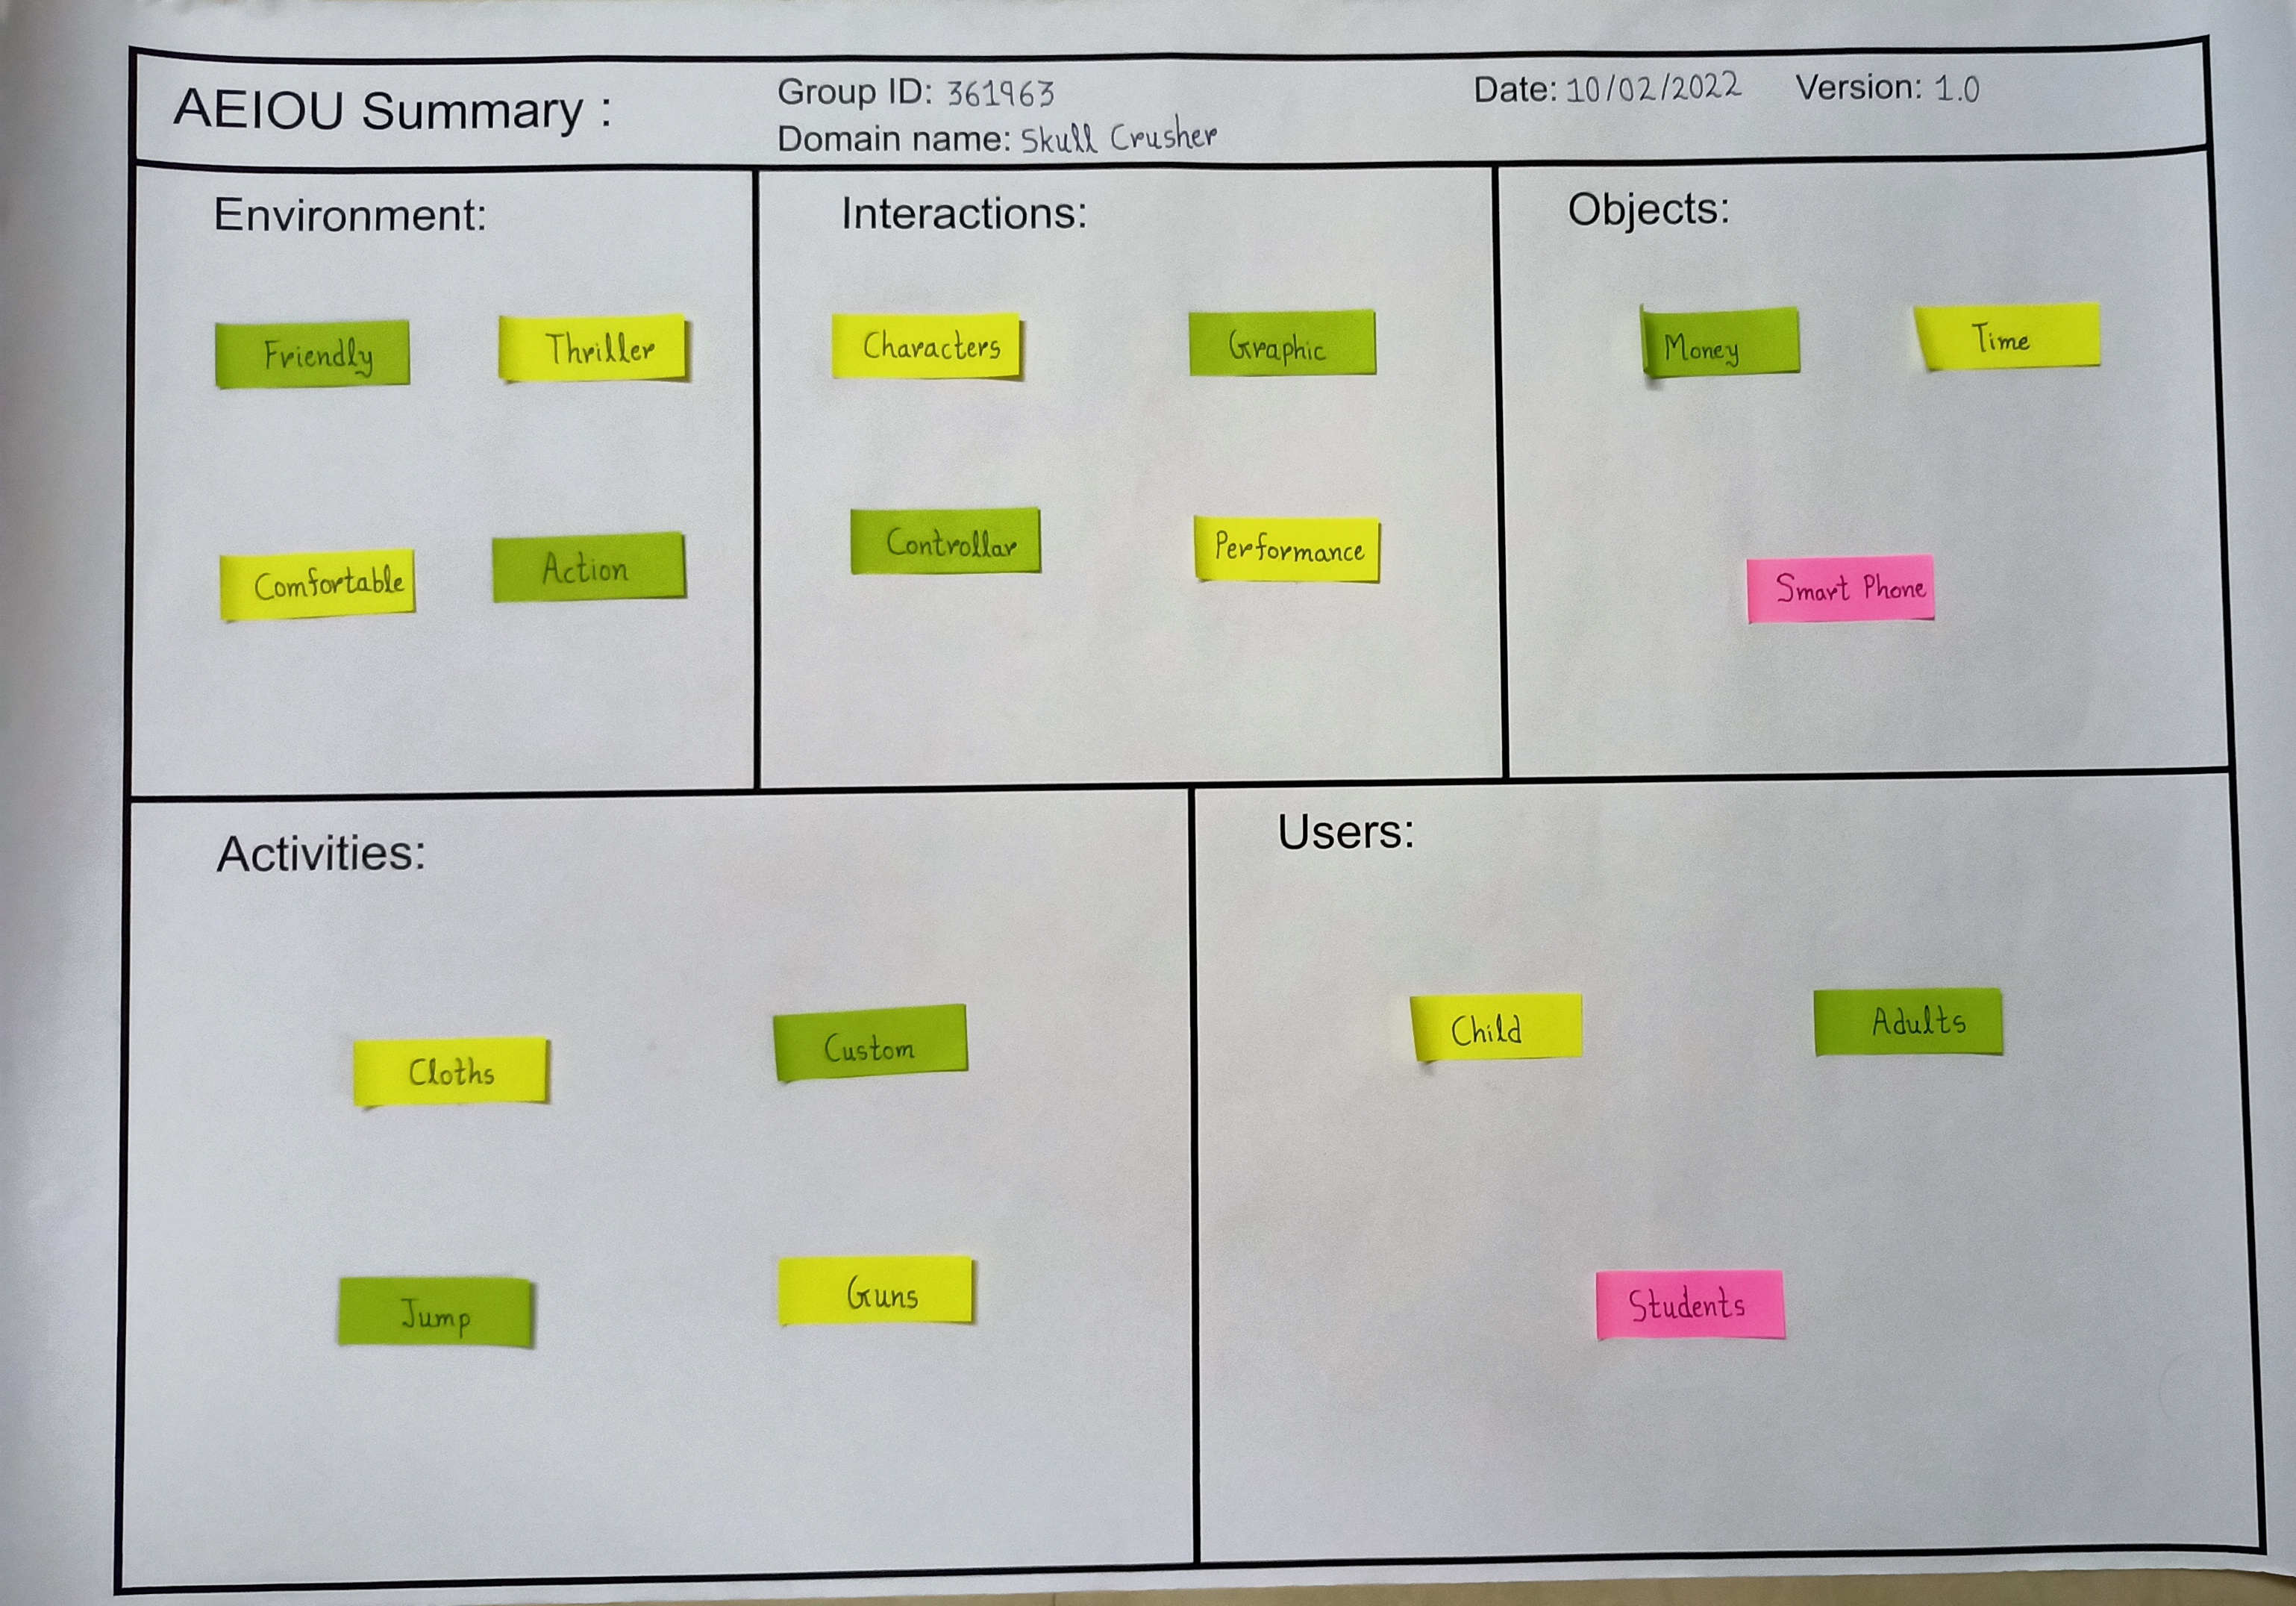 AEIOU Summary :
Group ID: 361963
Domain name: Skull Crusher
Date: 10/02/2022 Version: 1.0
Environment:
Friendly
Thriller
Comfortable
Action
Interactions:
Characters
Graphic
Controllar
Performance
Objects:
Money
Time
Smart Phone
Activities:
Cloths
Custom
Jump
Guns
Users:
Child
Adults
Students